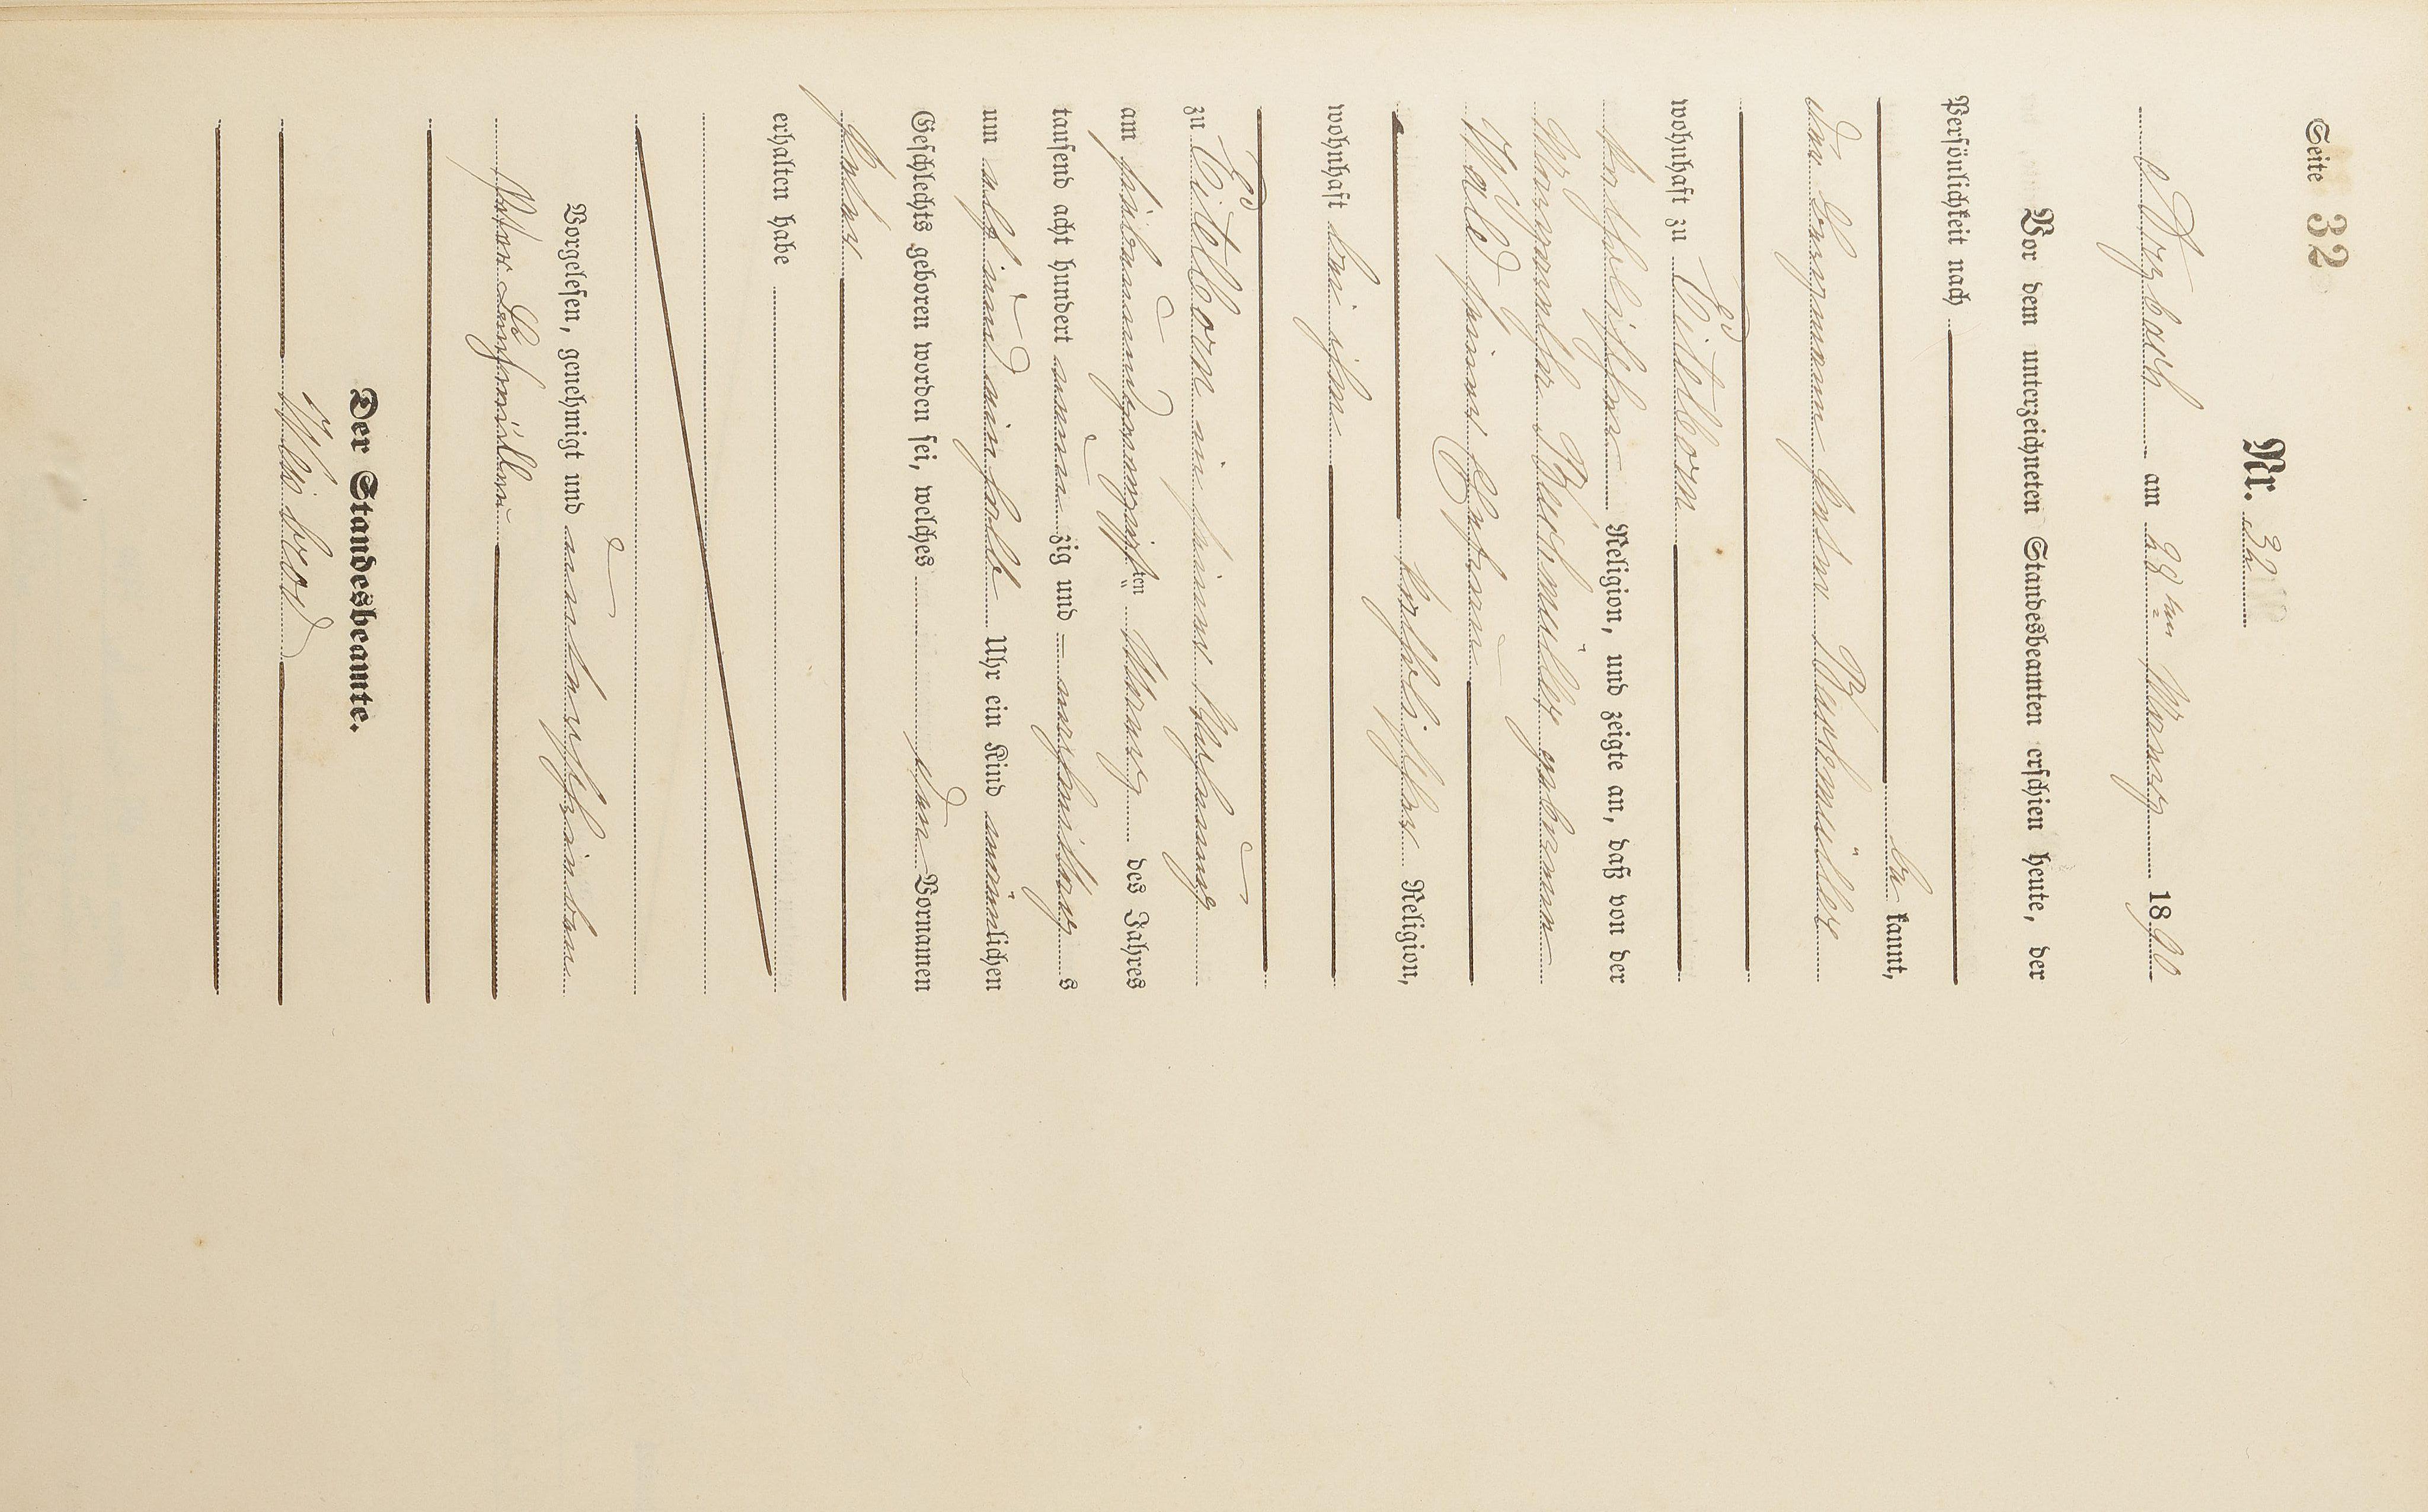 Seite 32
Nr. 32
Urzbach am 28ten März 1890
Vor dem unterzeichneten Standesbeamten erschien heute, der
Persönlichkeit nach
be kannt,
der Bergmann Peter Buchmüller
wohnhaft zu Eitelborn
katholischen Religion, und zeigte an, daß von der
Margarethe Buchmüller geborenen
Wald seiner Ehefrau
katholischer Religion,
wohnhaft bei ihm
zu Eitelborn in seiner Wohnung
am siebenundzwanzigsten März des Jahres
tausend acht hundert neunzig und nachmittags
um elf einhalb Uhr ein Kind männlichen
Geschlechts geboren worden sei, welches den Vornamen
Peter
erhalten habe
Vorgelesen, genehmigt und unterschrieben
Peter Buchmüller
Der Standesbeamte.